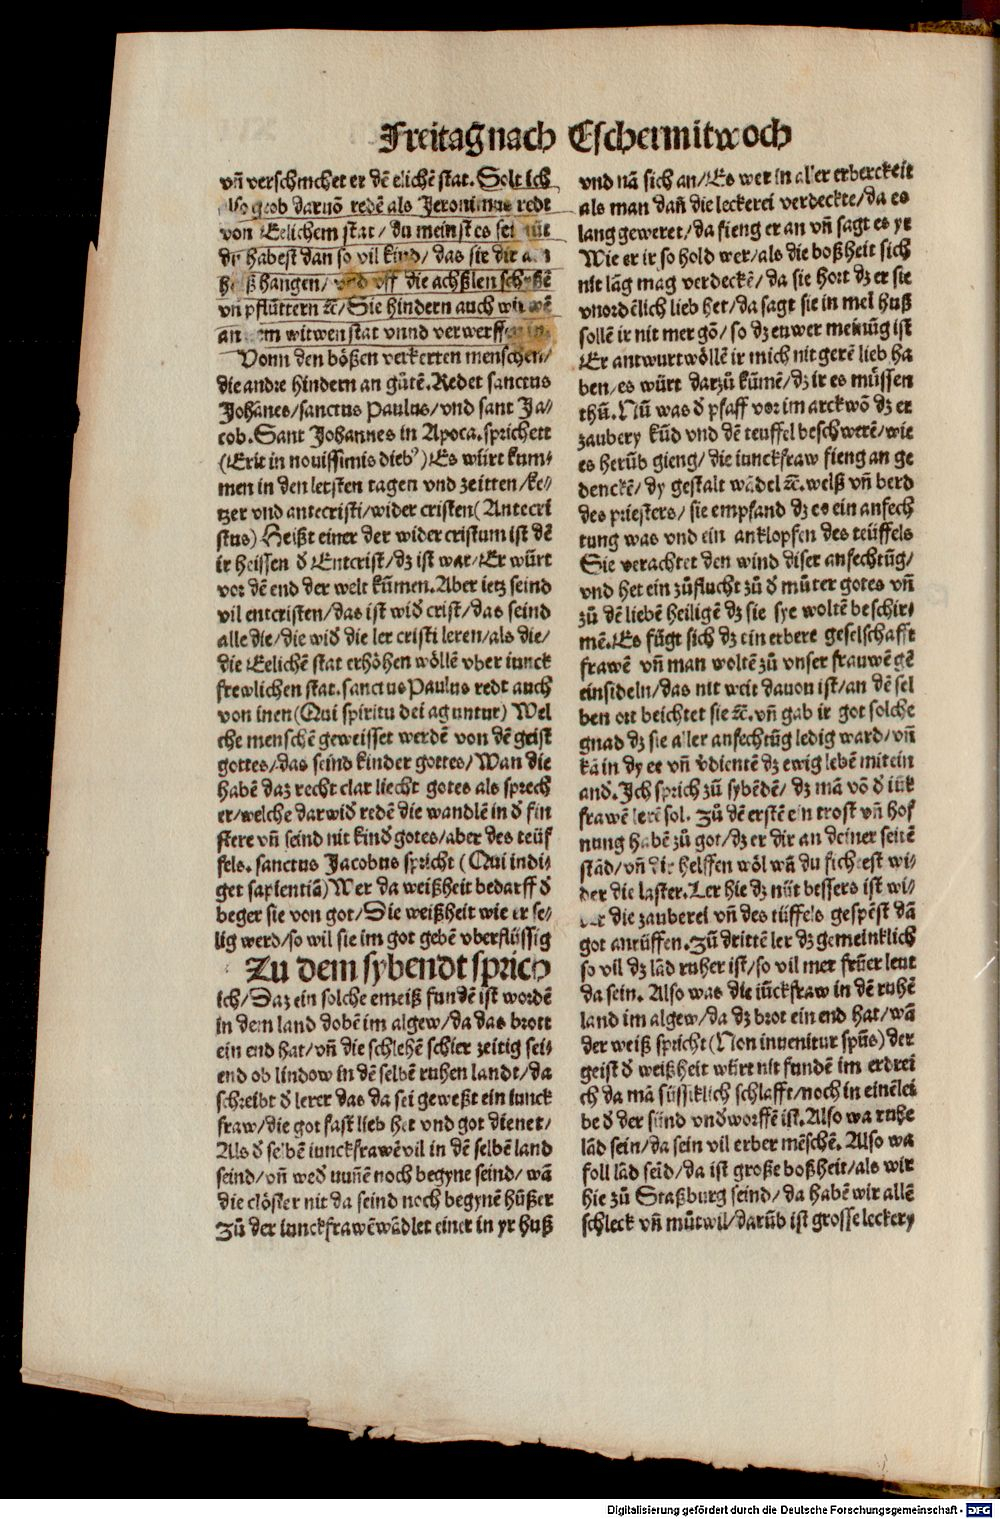 Freitag nach Eschermitwoch
vñ verschmehet er dē elichē stat. Solt ich
also grob daruō redē als Jeronimus redt
von Eelichem stat/ du meinst es sei nüt
dy habest dan so vil kind/ das sie dir an
halß hangen/ vnd vff die achßlen schyßē
vñ pflüttern ⁊c̄/ Sie hindern auch witwē
an dem witwen stat vnnd verwerffen in.
Vonn den bößen verkerten menschen/
die andre hindern an gůtē. Redet sanctus
Johānes/sanctus Paulus/vnd sant Ja⸗
cob. Sant Johannes in Apoca. sprichett
(Erit in nouissimis diebꝰ) Es würt kum⸗
men in den letsten tagen vnd zeitten/ke⸗
tzer vnd antecristi/wider cristen (Antecri
stus) Heißt einer der wider cristum ist dē
ir heissen ð Entcrist/dz ist war/Er würt
vor dē end der welt kūmen. Aber ietz seind
vil entcristen/das ist wið crist/das seind
alle die/die wið die ler cristi leren/als die/
die Eelichē stat erhöhen wöllē vber iunck
frewlichen stat. sanctus Paulus redt auch
von inen (Qui spiritu dei aguntur) Wel
che menschē geweisset werdē von dē geist
gottes/das seind kinder gottes/Wan die
habē daz recht clar liecht gotes als sprech
er/welche darwið redē die wandlē in ð fin
stere vñ seind nit kinð gotes/aber des teüf
fels. sanctus Jacobus spricht (Qui indi⸗
get sapientiā) Wer da weißheit bedarff ð
beger sie von got/Die weißheit wie er se⸗
lig werd/so wil sie im got gebē vberflüssig
Zu dem sybendt sprich
ich/Daz ein solche emeiß fundē ist wordē
in dem land dobē im algew/da das brott
ein end hat/vñ die schlehē schier zeitig sei⸗
end ob lindow in dē selbē ruhen landt/da
schreibt ð lerer das da sei geweßt ein iunck
fraw/die got fast lieb het vnd got dienet/
Als ð selbē iunckfrawē vil in dē selbē land
seind/vñ weð nunē noch begyne seind/ wā
die clöster nit da seind noch begynē hüßer
Zů der iunckfrawē wādlet einer in yr huß
vnd nā sich an/Es wer in aller erberckeit
als man dañ die leckerei verdeckte/da es
lang geweret/da fieng er an vñ sagt es yr
Wie er ir so hold wer/als die boßheit sich
nit lāg mag verdeckē/da sie hort dz er sie
vnordēlich lieb het/da sagt sie in mei huß
sollē ir nit mer gō/so dz euwer meinūg ist
Er antwurt wöllē ir mich nit gerē lieb ha
ben/es würt darzů kūmē/dz ir es müssen
thů. Nū was ð pfaff vor im arckwō dz er
zaubery kūd vnd dē teuffel beschwerē/wie
es herūb gieng/die iunckfraw fieng an ge
denckē/dy gestalt wādel ⁊c̄. weiß vñ berd
des priesters/ sie empfand dz es ein anfech
tung was vnd ein anklopfen des teüffels
Sie verachtet den wind diser anfechtūg/
vnd het ein zůflucht zů ð můter gotes vñ
zů dē liebē heiligē dz sie sye woltē beschir⸗
mē. Es fůgt sich dz ein erbere geselschafft
frawē vñ man woltē zů vnser frauwē gē
einsideln/das nit weit dauon ist/an dē sel
ben ort beichtet sie ⁊c̄. vñ gab ir got solche
gnad dz sie aller anfechtūg ledig ward/vñ
kā in dy ee vñ v̄dientē dz ewig lebē mitein
anð. Ich sprich zů sybēdē/ dz mā vō ð iük
frawē lerē sol. Zů dē erstē ein trost vñ hof
nung habē zů got/dz er dir an deiner seitē
stād/vñ dir helffen wöl wā du fichtest wi⸗
der die laster. Ler hie dz nüt bessers ist wi⸗
der die zauberei vñ des tüffels gespēst dā
got anrüffen. Zů drittē ler dz gemeinklich
so vil dz lād ruher ist/so vil mer frūer leut
da sein. Also was die iūckfraw in dē ruhē
land im algew/da dz brot ein end hat/wā
der weiß spricht (Non inuenitur spūs) der
geist ð weißheit würt nit fundē im erdrei
ch da mā süssiklich schlafft/noch in einē lei
be ð der sünd vnðworffē ist. Also wa ruhe
lād sein/da sein vil erber mēschē. Also wa
foll lād seid/da ist große boßheit/als wir
hie zů Straßburg seind/da habē wir allē
schleck vñ můtwil/darūb ist grosse leckery
Digitalisierung gefördert durch die Deutsche Forschungsgemeinschaft - DFG